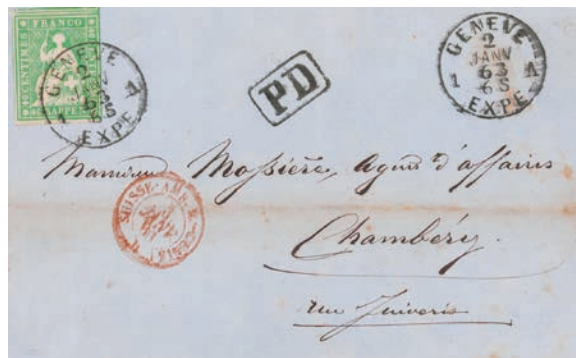 FRANCO
CENTIMES
RAPPEN
GENEVE
2
JANV
63
6S
1
EXPE
PD
GENEVE
2
JANV
63
6S
1
EXPE
Monsieur Mossière, agent d'affaires
SUISSE-AMB.
Chambéry
rue Juiverie